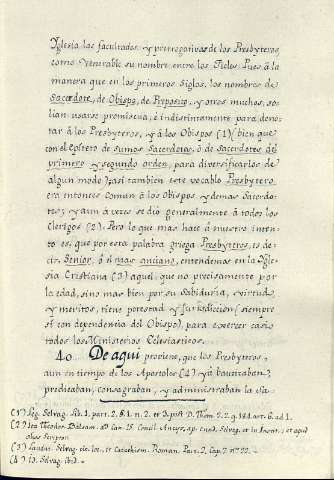 Iglesia las facultades y prerrogativas de los Presbyteros,
como Venerable su nombre entre los Fieles. Pues à la
manera que en los primeros Siglos, los nombres de
Sacerdote, de Obispo, de Preposito, y otros muchos, so-
lian usarse promiscua, é indistintamente para deno-
tar á los Presbyteros, y à los Obispos (1) (bien que
con el epíteto de Sumos Sacerdotes, ó de Sacerdotes del
primero y segundo orden, para diversificarlos de
algun modo); asi tambien este vocablo Presbytero
era entonces Comun à los Obispos y demas Sacerdo-
tes; y aun à veces se diò generalmente à todos los
Clerigos (2). Pero lo que mas hace á nuestro inten-
to es, que por esta palabra griega Presbyteros, es de-
cir, Senior, ó el mas anciano, entendemos en la Igle-
sia Cristiana (3) aquel, que no precisamente por
la edad, sino mas bien por su Sabiduria, virtud,
y meritos, tiene potestad y Jurisdiccion (siempre
sí con dependencia del Obispo), para exercer casi
todos los Ministerios Eclesiasticos.
40. De aqui proviene, que los Presbyteros,
aun en tiempo de los Apostoles (4) yá bautizaban,
predicaban, consagraban, y administraban la
(1) Selvag. lib. 1. part. 2. §. 1. n. 2. et D. Thom. 2. 2. q. 184. art. 6. ad 1.
(2) Ita Theodor. Balsam. ad Can. 15. Concil. Ancyr. ap. eund. Selvag. et in Instit.; et apud
alios Scriptor.
(3) Selvag. cit. loc., et Catechism. Roman. Part. 2. Cap. 7. nº 22.
(4) Id. Selvag. ibid.